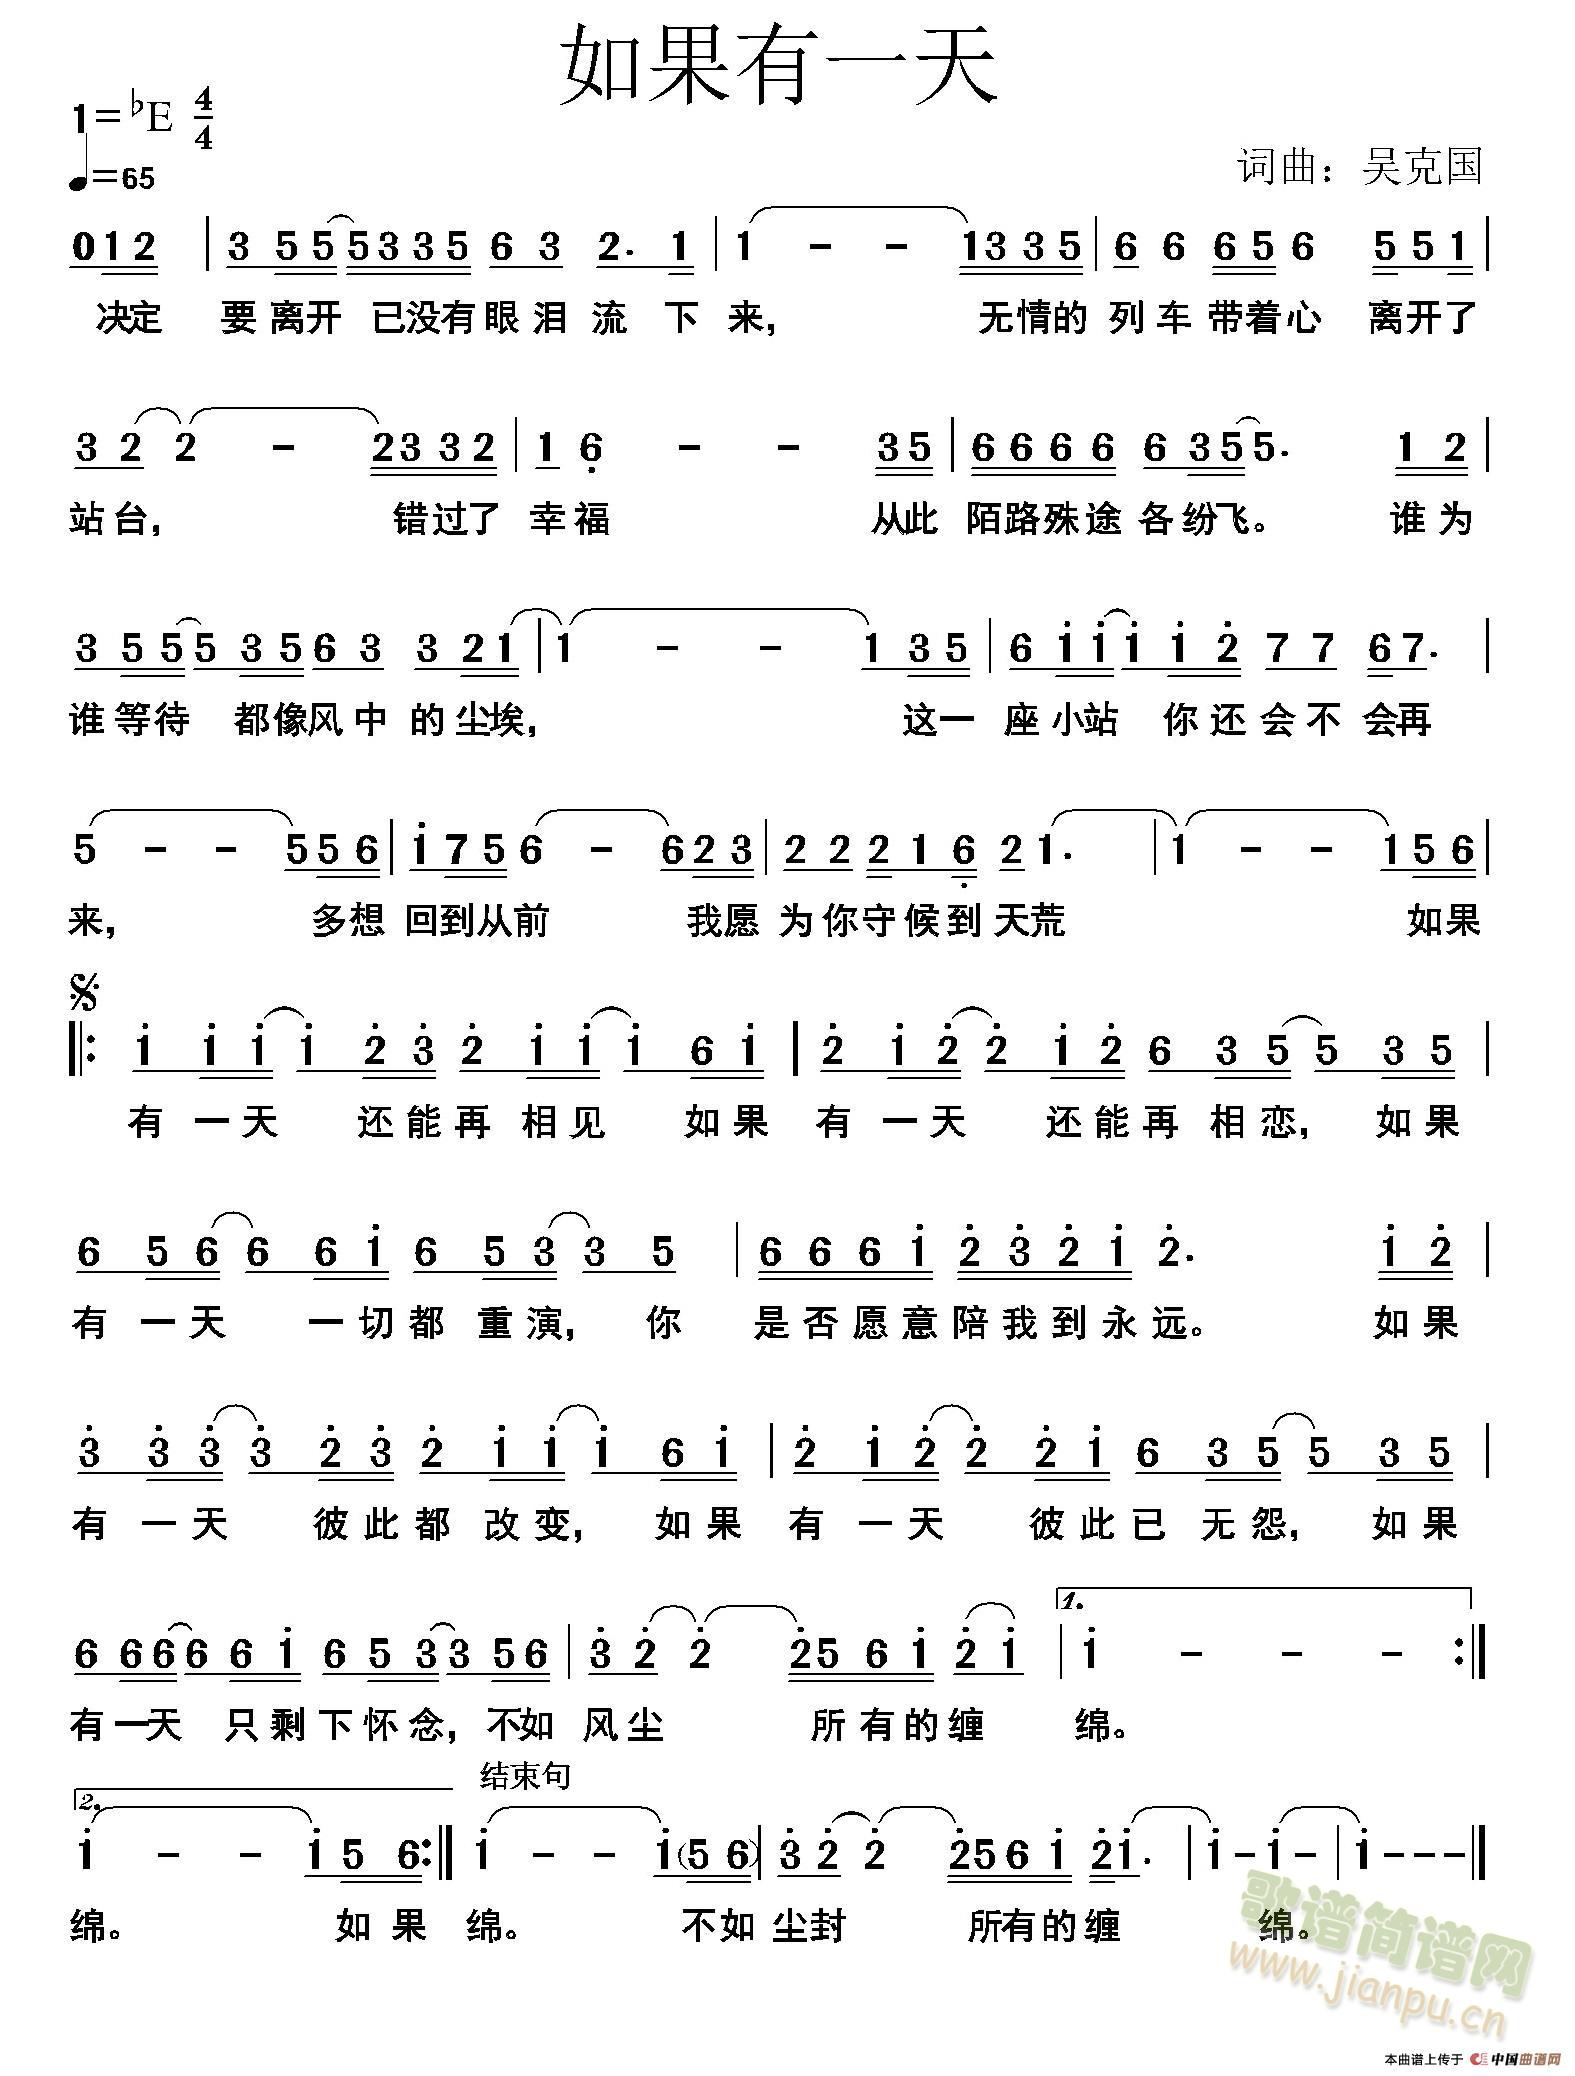 如果有一天
1=♭E 4/4
♩=65
词曲：吴克国
012 | 3 555335 63 2. 1 | 1 - - 1335 | 6 6 656 551 |
决定 要离开 已没有眼泪 流 下 来， 无情的 列车 带着心 离开了
3 2 2 - 2332 | 1 6 - - 35 | 6666 6355. 1 2 |
站台， 错过了 幸福 从此 陌路殊途 各纷飞。 谁为
3 555 35 63 3 21 | 1 - - 1 35 | 6 111 12 77 67. |
谁等待 都像风中 的尘埃， 这一 座小站 你还会不 会再
5 - - 556 | 1756 - 623 | 22216 21. | 1 - - 156 |
来， 多想 回到从前 我愿 为你守候到 天荒 如果
𝄋
|: 1 111 23 2 111 61 | 2 122 12 6 355 35 |
有 一天 还能再 相见 如果 有 一天 还能再 相恋， 如果
6 566 61 6 533 5 | 6661 2321 2. 12 |
有 一天 一切都 重演， 你 是否愿意陪我到永远。 如果
3 333 23 2 111 61 | 2 122 21 6 355 35 |
有 一天 彼此都 改变， 如果 有 一天 彼此已 无怨， 如果
6 666 61 6533 56 | 3 2 2 2561 21 | 1. 1 - - - :|
有一天 只剩下怀念，不如 风尘 所有的缠 绵。
结束句
2. 1 - - 15 6 :| 1 - - 1(56) | 322 2561 21. | 1 - 1 - | 1 - - - ||
绵。 如果 绵。 不如 尘封 所有的缠 绵。
歌谱简谱网
www.jianpu.cn
本曲谱上传于 中国曲谱网